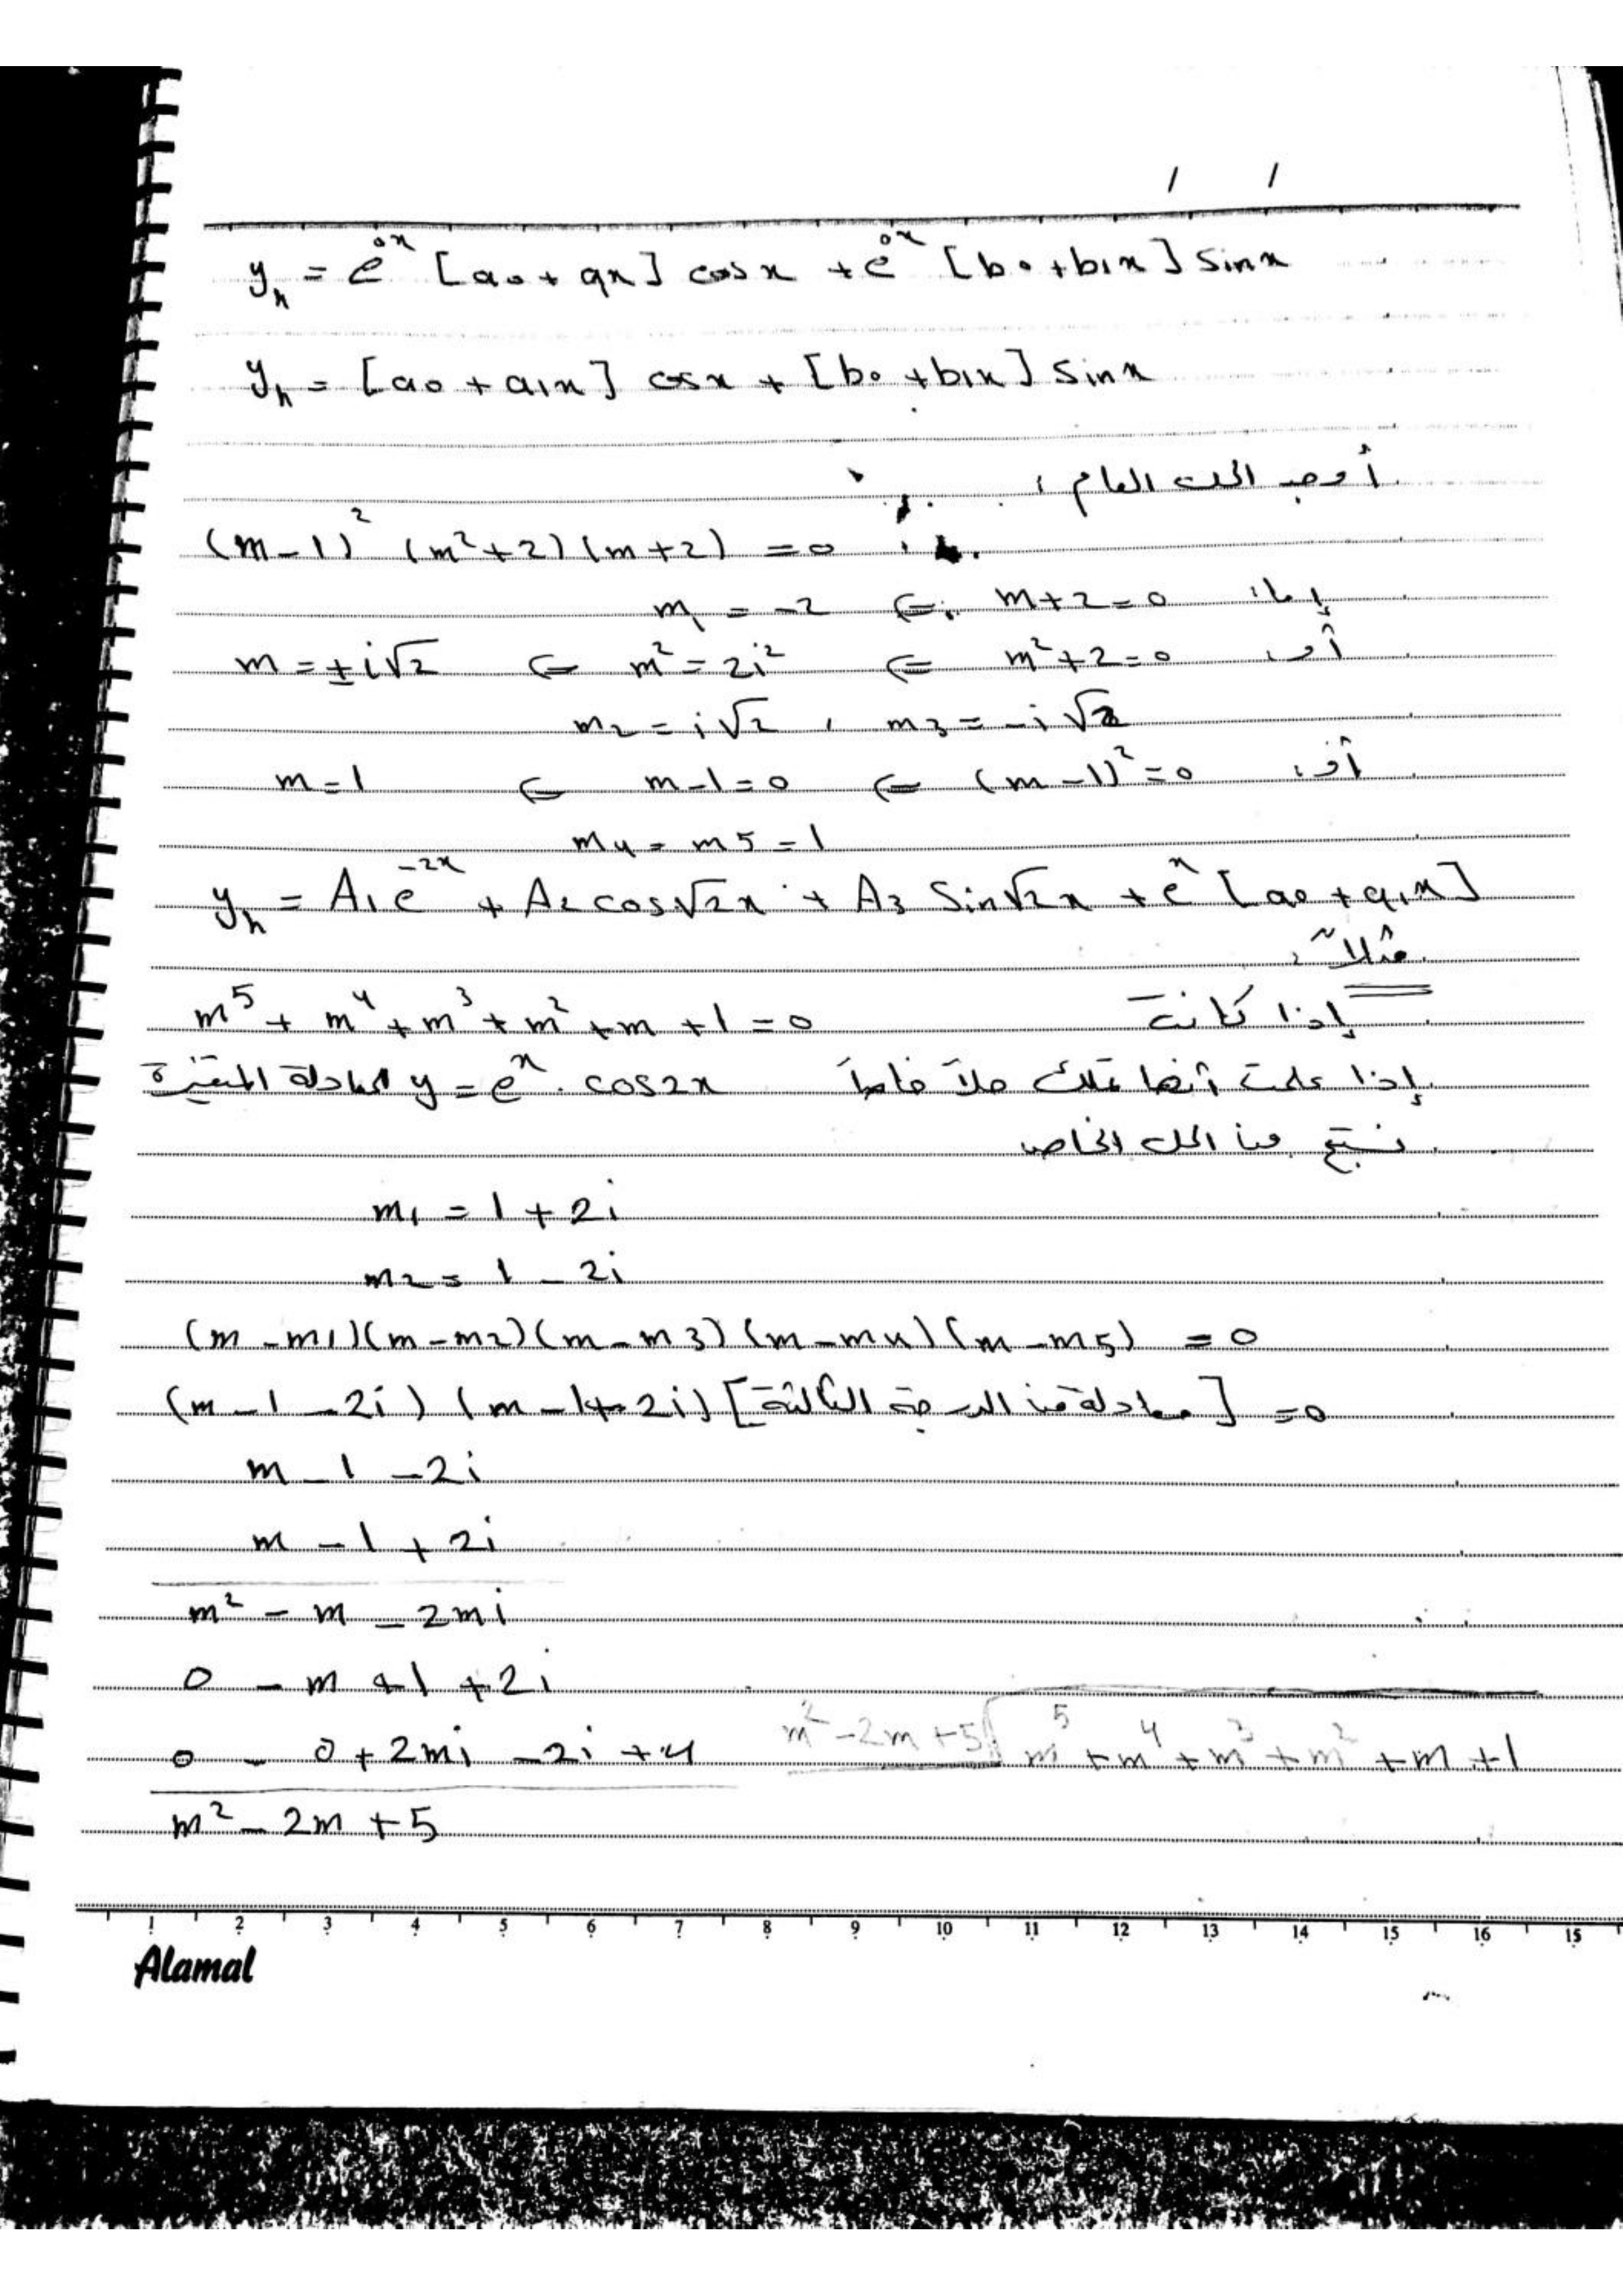 / /
yₕ = e⁰ˣ [a₀ + a₁x] cos x + e⁰ˣ [b₀ + b₁x] sin x
yₕ = [a₀ + a₁x] cos x + [b₀ + b₁x] sin x
أوجد الحل العام :
(m - 1)² (m² + 2) (m + 2) = 0
إما: m + 2 = 0 ⇐ m₁ = -2
أو: m² + 2 = 0 ⇐ m² = 2i² ⇐ m = ± i√2
m₂ = i√2 , m₃ = -i√2
أو: (m - 1)² = 0 ⇐ m - 1 = 0 ⇐ m = 1
m₄ = m₅ = 1
yₕ = A₁e⁻²ˣ + A₂ cos√2x + A₃ sin√2x + eˣ [a₀ + a₁x]
مثلاً:
إذا كانت m⁵ + m⁴ + m³ + m² + m + 1 = 0
إذا علمت أنها تملك حلاً خاصاً y = eˣ . cos2x للمعادلة المميزة
نستنتج من الحل الخاص
m₁ = 1 + 2i
m₂ = 1 - 2i
(m - m₁)(m - m₂)(m - m₃)(m - m₄)(m - m₅) = 0
(m - 1 - 2i) (m - 1 + 2i) [معادلة من الدرجة الثالثة] = 0
m - 1 - 2i
m - 1 + 2i
m² - m - 2mi
0 - m + 1 + 2i
0 - 0 + 2mi - 2i + 4
m² - 2m + 5 m⁵ + m⁴ + m³ + m² + m + 1
m² - 2m + 5
1 2 3 4 5 6 7 8 9 10 11 12 13 14 15 16 15
Alamal